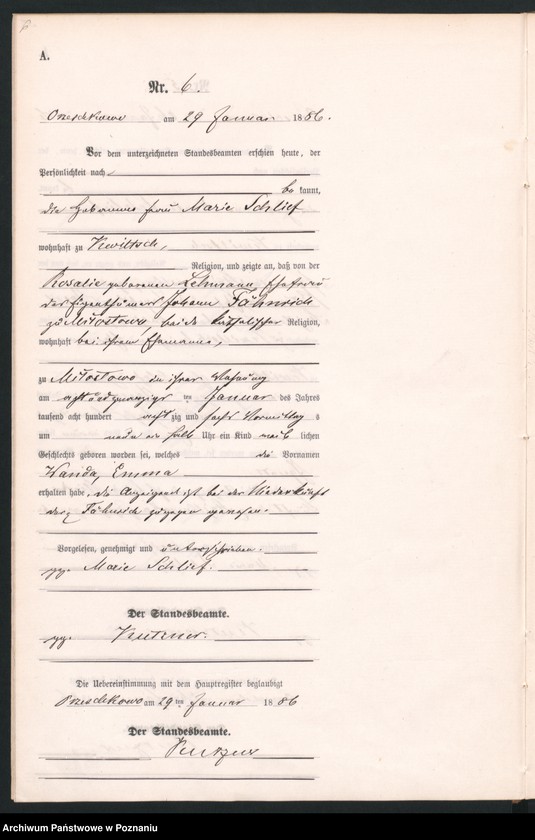 A.
Nr. 6.
Orzeschkowo am 29 Januar 1886.
Vor dem unterzeichneten Standesbeamten erschien heute, der
Persönlichkeit nach
be kannt,
die Hebamme Frau Marie Schlief
wohnhaft zu Kwiltsch,
Religion, und zeigte an, daß von der
Rosalie geborenen Lehmann, Ehefrau
des Eigenthümers Johann Fähnrich
zu Miłostowo, beide katholischer Religion,
wohnhaft bei ihrem Ehemanne,
zu Miłostowo in ihrer Wohnung
am achtundzwanzigsten ten Januar des Jahres
tausend acht hundert acht zig und sechs Vormittag s
um neun ein halb Uhr ein Kind weib lichen
Geschlechts geboren worden sei, welches die Vornamen
Wanda, Emma
erhalten habe, die Anzeigende ist bei der Niederkunft
der Fähnrich zugegen gewesen.
Vorgelesen, genehmigt und unterschrieben.
gez. Marie Schlief.
Der Standesbeamte.
gez. Kutzner.
Die Uebereinstimmung mit dem Hauptregister beglaubigt
Orzeschkowo am 29 ten Januar 1886
Der Standesbeamte.
Kutzner
Archiwum Państwowe w Poznaniu